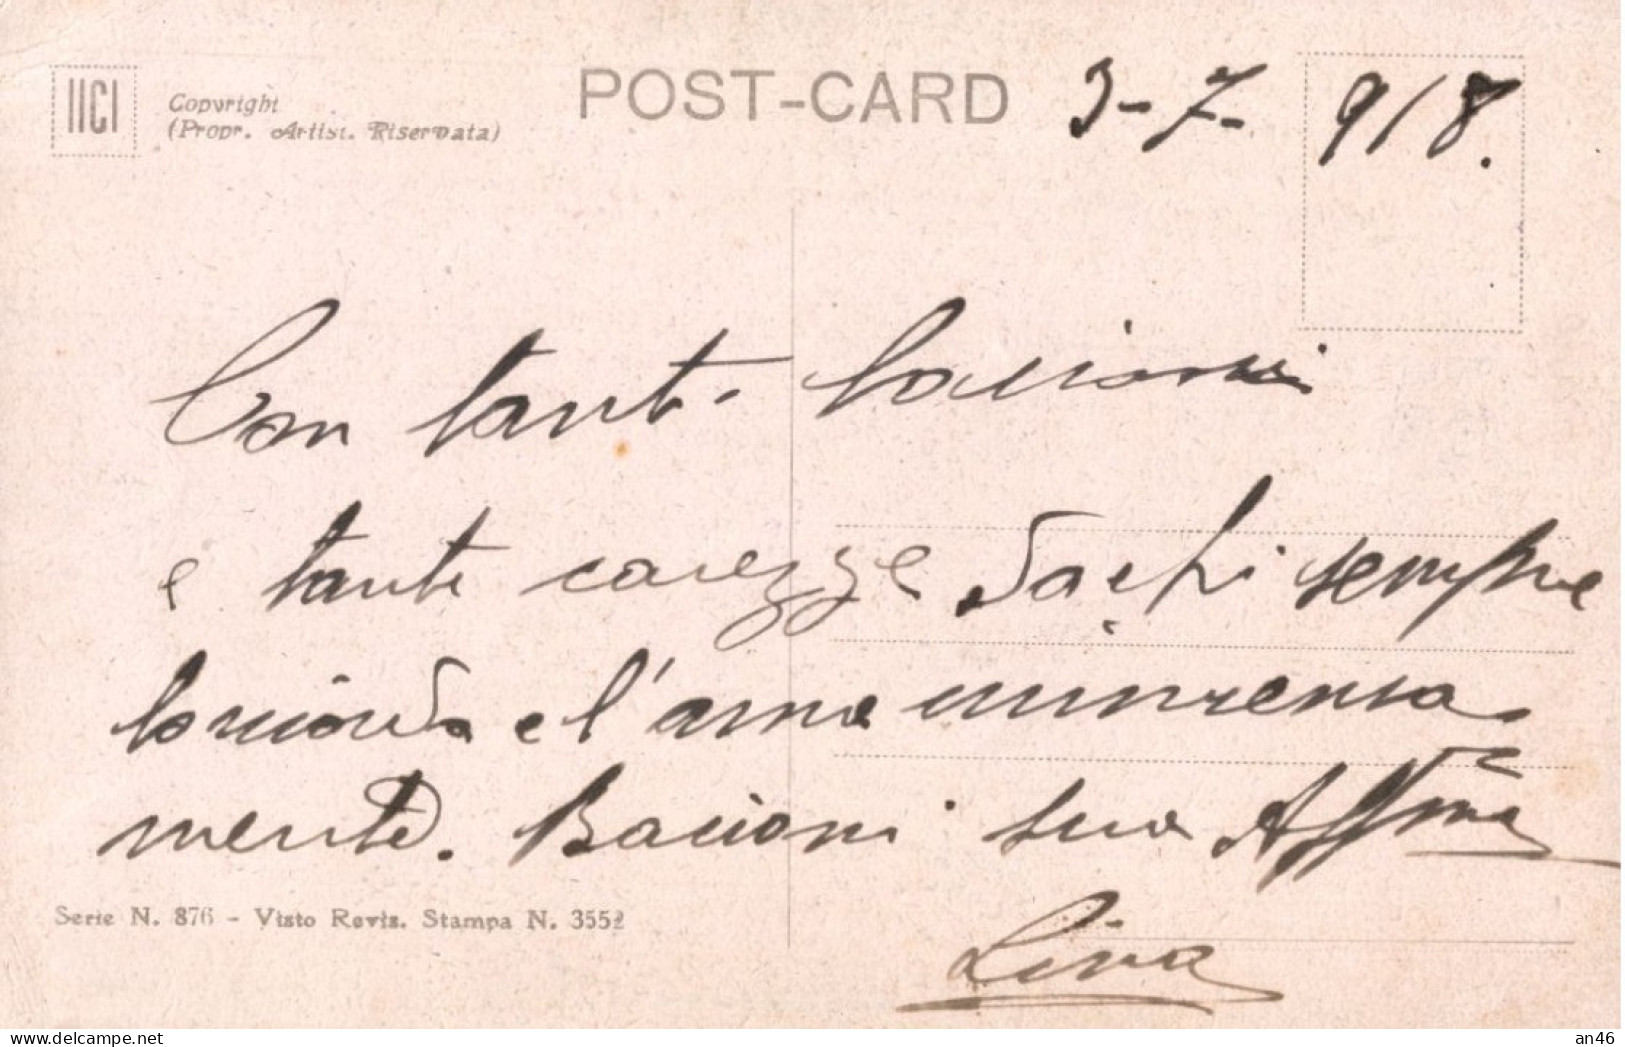 IICI
Copyright
(Propr. Artist. Riservata)
POST-CARD
3-7- 918.
Con tanti bacioni
e tante carezze da chi sempre
la ricorda e l'ama immensa
mente. Bacioni sua Aff.ma
Lina
Serie N. 876 - Visto Revis. Stampa N. 3552
an46